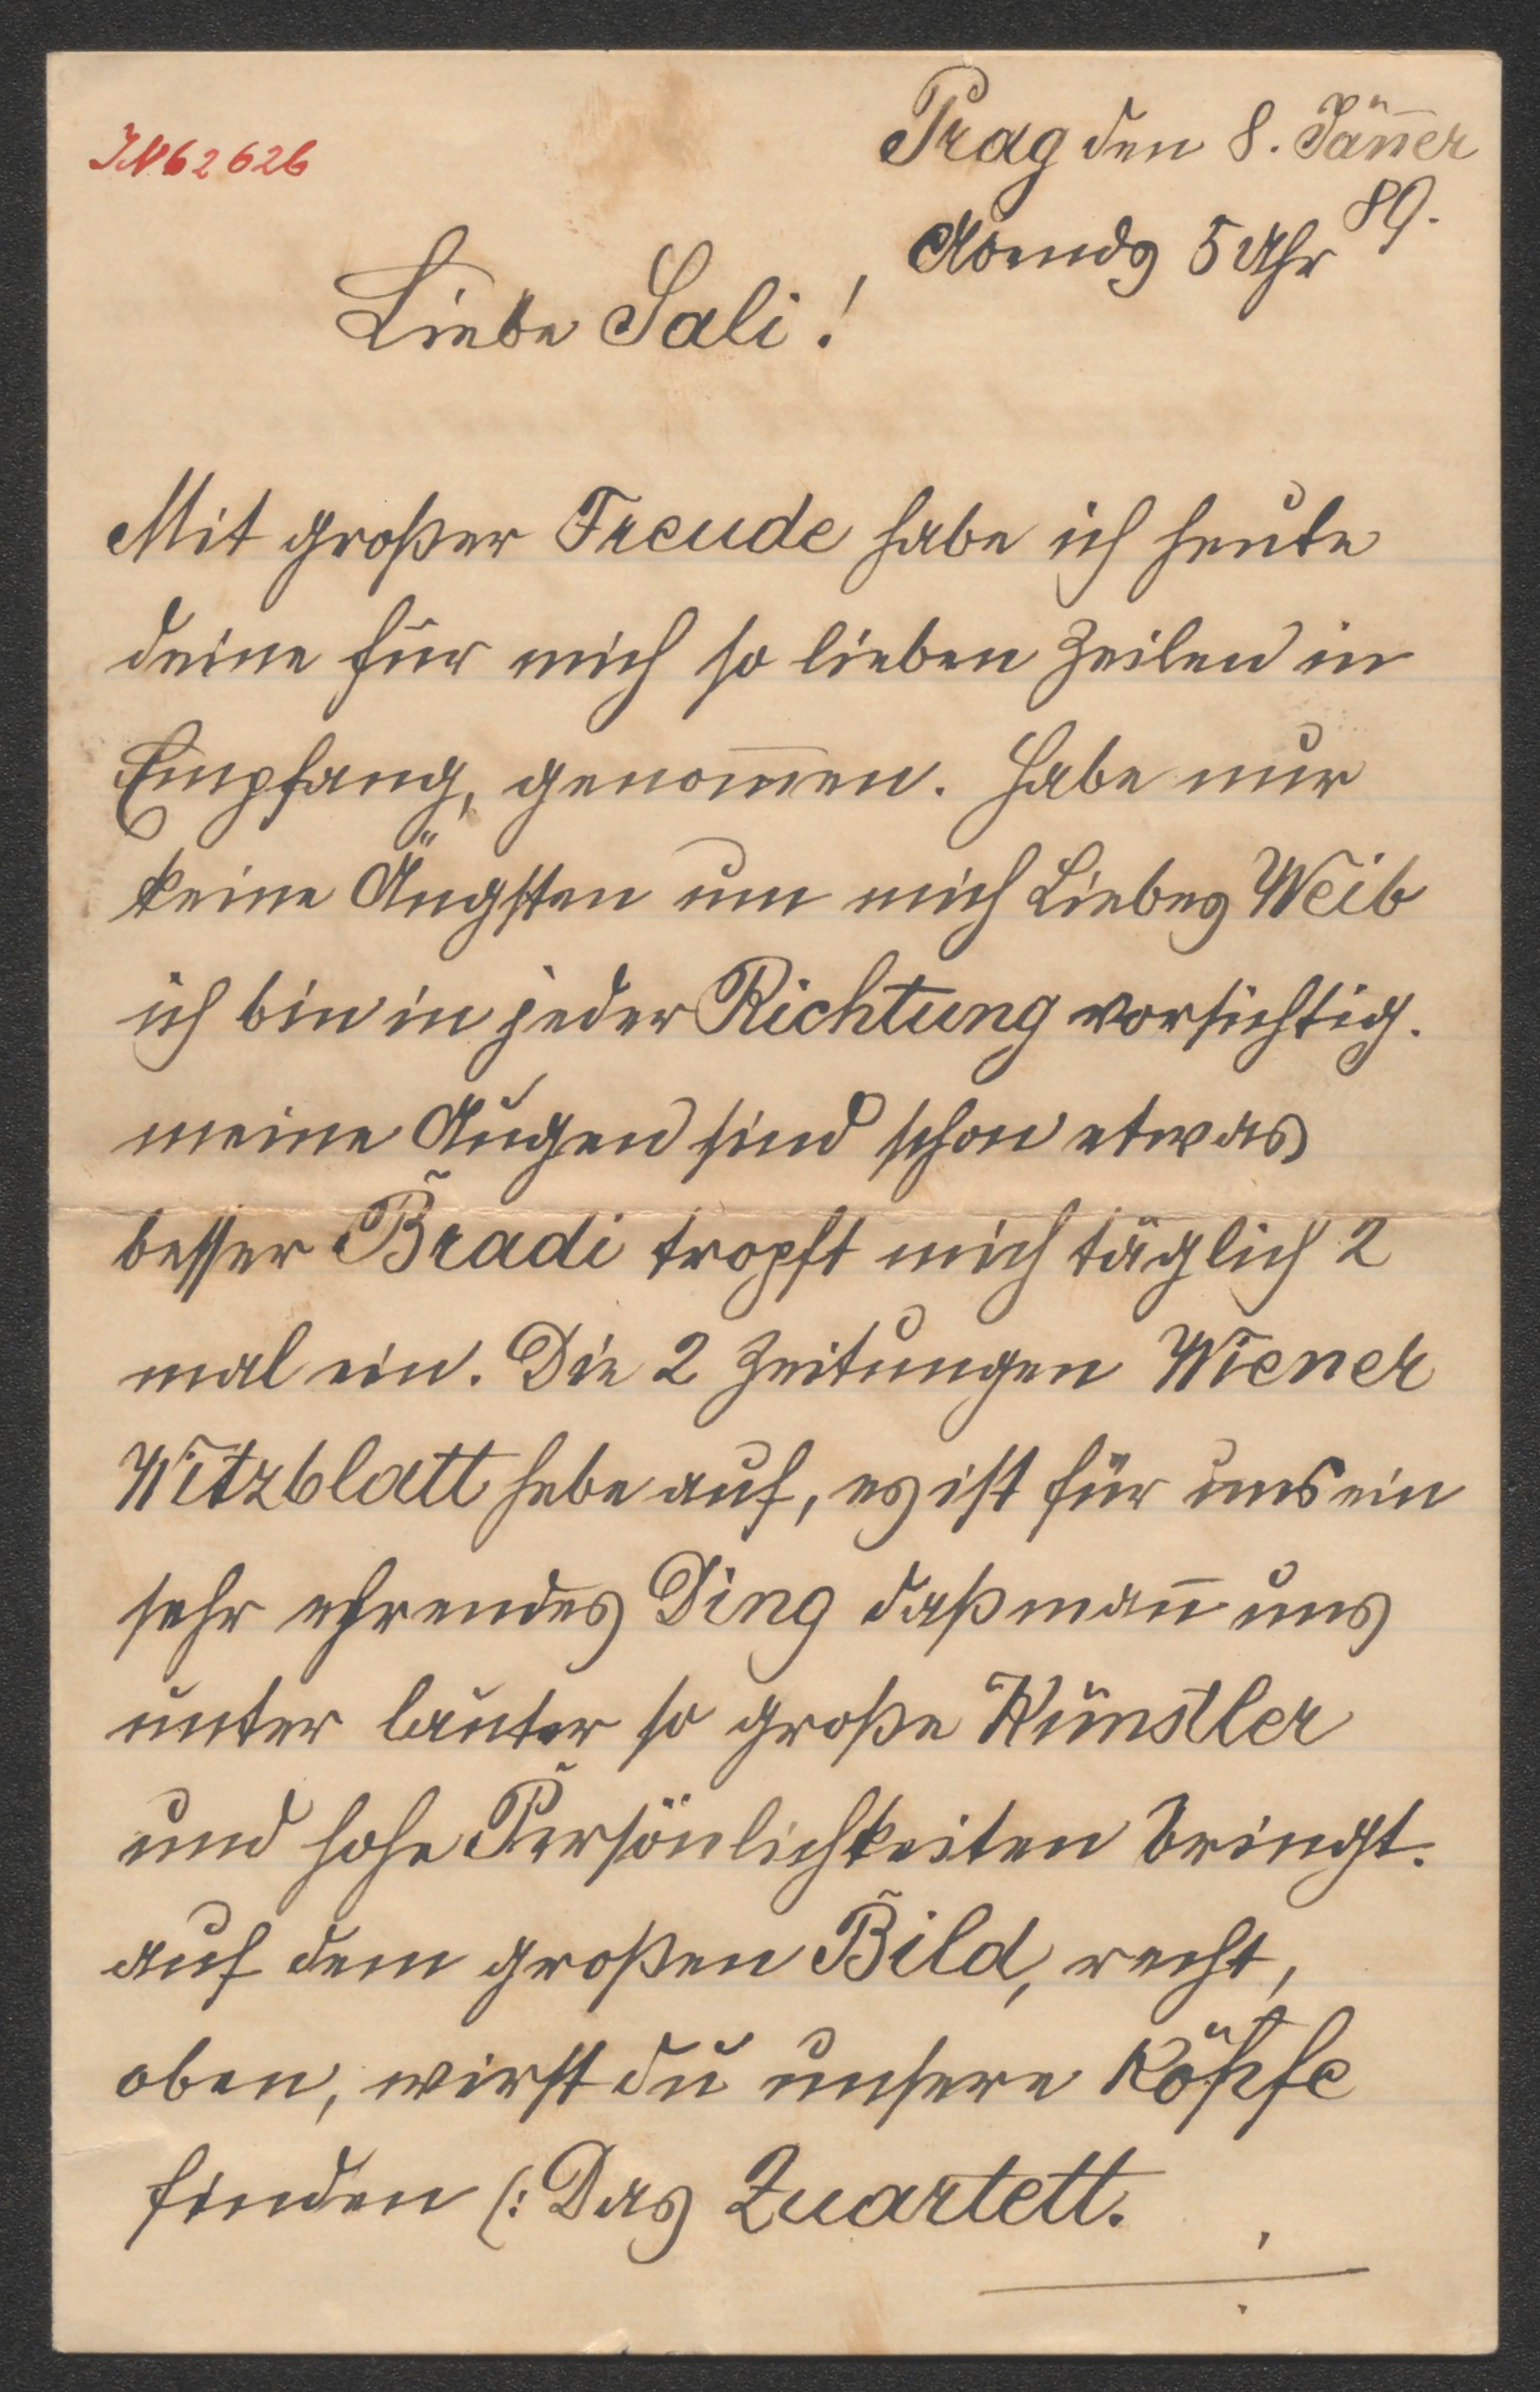 IN 62626
Prag den 8. Jäner
89.
Abends 5 Uhr
Liebe Sali!
Mit großer Freude habe ich heute
deine für mich so lieben Zeilen in
Empfang, genomen. Habe nur
keine Ängsten um mich Liebes Weib
ich bin in jeder Richtung vorsichtig.
meine Augen sind schon etwas
besser Bradi tropft mich täglich 2
mal ein. Die 2 Zeitungen Wiener
Witzblatt hebe auf, es ist für uns ein
sehr ehrendes Ding daß man̅ uns
unter lauter so große Künstler
und hohe Persönlichkeiten bringt.
auf dem großen Bild, recht,
oben, wirst du unsere Köpfe
finden (: Das Quartett.